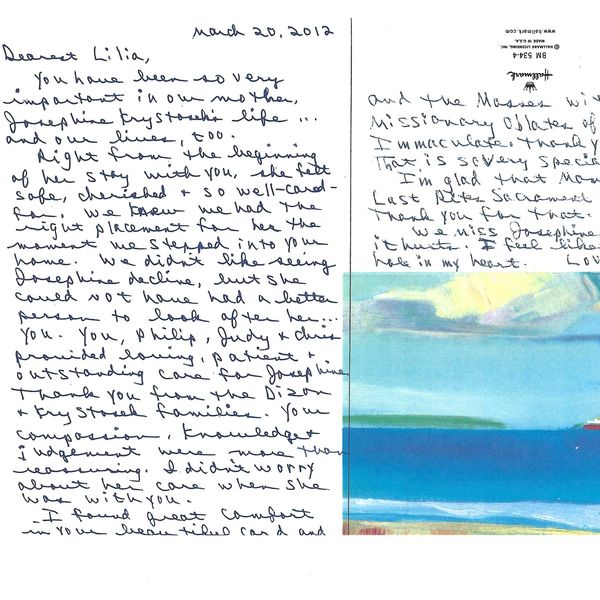 March 20, 2012
Dearest Lilia,
You have been so very
important in our mother,
Josephine Krystosek's life ...
and our lives, too.
Right from the beginning
of her stay with you, she felt
safe, cherished & so well-cared-
for. We knew we had the
right placement for her the
moment we stepped into your
home. We didn't like seeing
Josephine decline, but she
could not have had a better
person to look after her...
you. You, Philip, Judy & Chris
provided loving, patient &
outstanding care for Josephine
Thank you from the Dizon
& Krystosek families. Your
compassion, knowledge &
judgement were more than
reassuring. I didn't worry
about her care when she
was with you.
I found great comfort
in your beautiful card and
www.hallmark.com
MADE IN U.S.A.
© HALLMARK LICENSING, INC.
BM 534-4
Hallmark
and the Masses wit
Missionary Oblates of
Immaculate. Thank y
That is so very specia
I'm glad that Mom
Last Rites Sacrament
Thank you for that.
We miss Josephine
it hurts. I feel like
hole in my heart. Lov